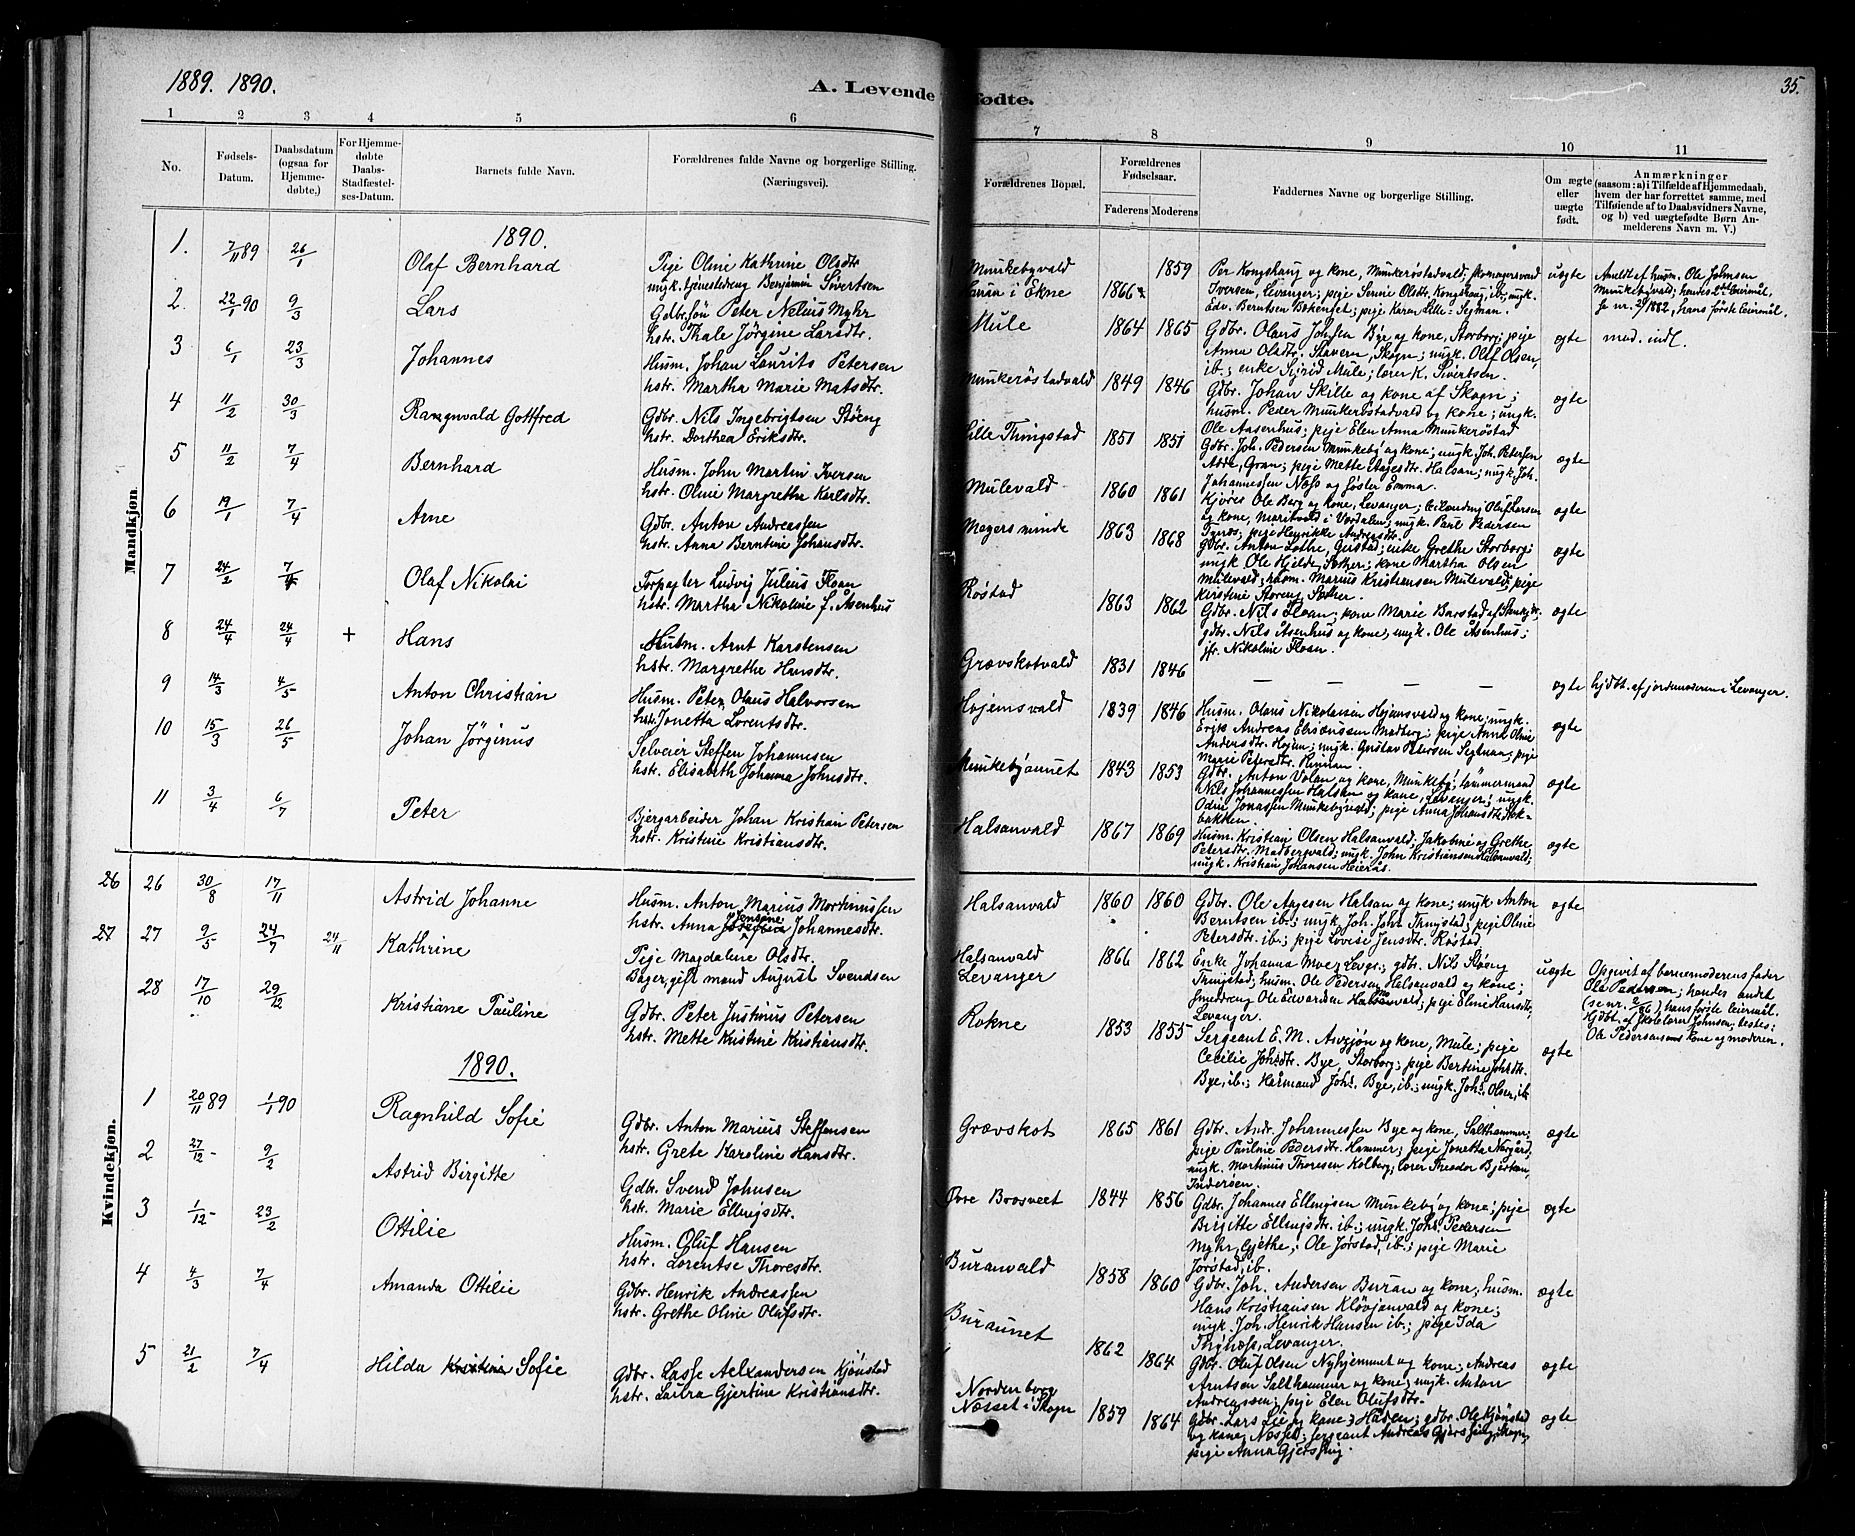 1889. 1890.
A. Levende fødte.
35.
1 2 3 4 5 6 7 8 9 10 11
No.
Fødsels-
Datum.
Daabsdatum
(ogsaa for
Hjemme-
døbte.)
For Hjemme-
døbte
Daabs-
Stadfæstel-
ses-Datum.
Barnets fulde Navn.
Forældrenes fulde Navne og borgerlige Stilling.
(Næringsvei).
Forældrenes Bopæl.
Forældrenes
Fødselsaar.
Faderens Moderens
Faddernes Navne og borgerlige Stilling.
Om ægte
eller
uægte
født.
Anmærkninger
(saasom: a) i Tilfælde af Hjemmedaab,
hvem der har forrettet samme, med
Tilføiende af to Daabsvidners Navne,
og b) ved uægtefødte Børn An-
melderens Navn m. V.)
Mandkjøn
1890.
1. 7/11 89 26/1 Olaf Bernhard
Pige Oline Kathrine Olsdtr
ungk. tjenestedreng Benjamin Sivertsen
Munkebyvald
i Ekne
1866 1859
Per Kongshaug og kone, Munkerøstadvald; skomagersvend
Iversen, Levanger; pige Serine Olsdtr. Kongshaug, ib.; ungk.
Edv. Berntsen Bokenget; pige Karen Lille-Segman.
uægte
Anmldt af husm. Ole Johnsen
Munkebyvald; hendes 2det leiermål.
se nr. 2/1882, hans første leiermål.
2. 22/1 90 9/3 Lars
Gdbr.søn Peter Nelius Myhr
hstr. Thale Jørgine Larsdtr.
Mule
1864 1865
Gdbr. Olaus Johnsen Bye og kone, Storborg; pige
Anna Olsdtr. Stavern, Skogn; ungk. Olaf Olsen,
ib.; enke Sigrid Mule; lærer K. Sivertsen.
ægte
mod. indl.
3 6/1 23/3 Johannes
Husm. Johan Laurits Petersen
hstr. Martha Marie Matsdtr.
Munkerøstadvald
1849 1846
Gdbr. Johan Skille og kone af Skogn;
husm. Peder Munkerøstadvald og kone; ungk.
Ole Aasenhus; pige Elen Anna Munkerøstad
ægte
4 11/2 30/3 Rangnvald Gottfred
Gdbr. Nils Ingebrigtsen Støeng
hstr. Dorthea Eriksdtr.
Lille Thingstad
1851 1851
Gdbr. Joh. Pedersen Munkeby og kone; ungk. Joh. Petersen
Aare, Gran; pige Mette Aagesdtr. Halsan; ungk. Joh.
Johannessen Næss og søster Emma.
ægte
5 11/2 7/4 Bernhard
Husm. John Martin Iversen
hstr. Oline Margrethe Karlsdtr.
Mulevald
1860 1861
Kjøres Ole Berg og kone, Levanger;
og kone, Maritvald i Værdalen; ungk. Paul Pedersen
pige Henrikke Andreasdtr.
ægte
6 19/1 7/4 Arne
Gdbr. Anton Andreassen
hstr. Anna Berntine Johansdtr.
Meyers minde
1863 1868
Gdbr. Anton Lothe, Gjerstad; enke Grethe Storborg;
ungk Ole Hjelde, kone Martha Olsen
Mulevald; husm. Marius Kristiansen Mulevald; pige
Kirstine Støreng,
ægte
7 24/2 7/4 Olaf Nikolai
Forpagter Ludvig Julius Floan
hstr. Martha Nikoline f. Åsenhus
Røstad
1863 1862
Gdbr. Nils Floan; kone Marie Barstad af
gdbr. Nils Åsenhus og kone; ungk. Ole Åsenhus;
jfr. Nikoline Floan.
ægte
8 24/4 24/4 + Hans
Husm. Arnt Karstensen
hstr. Margrethe Hansdtr.
Grævskotvald
1831 1846
— — — —
ægte
hjdbt. af jordemoderen i Levanger.
9 14/3 4/5 Anton Christian
Husm. Peter Olaus Halvorsen
hstr. Jonetta Lorentsdtr.
Højemsvald
1839 1846
Husm. Olaus Nikolaisen Højemsvald og kone; ungk.
Erik Andreas Eliseussen Madberg; pige Anne Oline
Andersdtr. Hojem; ungk. Gustav Petersen Segtnan; pige
Marie Petersdtr. Rinnan.
ægte
10 15/3 26/5 Johan Jörginus
Selveier Steffen Johannesen
hstr. Elisabeth Johanna Johnsdtr.
Munkebyaunet
1843 1853
Gdbr. Anton Volan og kone, Munkeby; tømmermand
Nils Johannesen Halsan og kone, Levanger; ungk.
Odin Jonassen Munkebyvald; pige Anna Johansdtr
bakken.
ægte
11 3/4 6/7 Peter
Bjergarbeider Johan Kristian Petersen
hstr. Kristine Kristiansdtr.
Halsanvald
1867 1869
Husm. Kristian Olsen Halsanvald; Jakobine og Grethe
Petersdtr. Madbergvald; ungk. John Kristiansen Halsanvald;
ungk. Kristian Johansen Heieraas.
ægte
Kvindekjøn.
26 26 30/8 17/11 Astrid Johanne
Husm. Anton Marius Mortinussen
hstr. Anna Jensine Johannesdtr.
Halsanvald
1860 1860
Gdbr. Ole Aagesen Halsan og kone; ungk Anton
Berntsen ib.; ungk. Joh. Johs. Thingstad; pige Oline
Petersdtr. ib.; pige Lovise Jensdtr. Røstad.
ægte
27 27 9/5 24/7 24/11 Kathrine
Pige Magdalene Olsdtr.
Bager, gift mand August Svendsen
Halsanvald
Levanger
1866 1862
Enke Johanna Moe, Levgr.; gdbr. Nils Støeng
Thingstad; husm. Ole Pedersen Halsanvald og kone;
smeddreng Ole Edvardsen Halsanvald; pige Eline Hansdtr,
Levanger.
uægte
Opgivet af barnemoderens fader
Ole Pedersen; hendes andet
(se nr. 2/86), hans første leiermål.
Hjdbt. af skolelærer Johnsen, testes:
Ole Pedersens kone og moderen.
28 17/10 29/12 Kristiane Pauline
Gdbr. Peter Justinus Petersen
hstr. Mette Kristine Kristiansdtr.
Rokne
1853 1855
Sergeant E. M. Aunjøn og kone, Mule; pige
Cecilie Johsdtr. Bye, Storborg; pige Bertine Johsdtr.
Bye, ib.; Hermand Johs. Bye, ib.; ungk. Johs. Olsen, ib.
ægte
1890.
1 20/11 89 1/1 90 Ragnhild Sofie
Gdbr. Anton Marius Steffensen
hstr. Grete Karoline Hansdtr.
Grævskot
1865 1861
Gdbr. Andr. Johannessen Bye og kone, Salthammer;
pige Pauline Pedersdtr. Hammer; pige Jonetta Norgård;
ungk. Martinus Thoresen Kolberg; lærer Theodor Bjertan,
Inderøen.
ægte
2 27/12 - 9/2 Astrid Birgitte
Gdbr. Svend Johnsen
hstr. Marie Ellingsdtr.
Øvre Brosveet
1844 1856
Gdbr. Johannes Ellingsen Munkeby og kone; pige
Birgitte Ellingsdtr. ib.; ungk. Johs. Pedersen
Myhr, Gjethe; Ole Jørstad, ib.; pige Marie
Jørstad, ib.
ægte
3 1/12 - 23/2 Ottilie
Husm. Oluf Hansen
hstr. Lorentse Thoresdtr.
Buranvald
1858 1860
Gdbr. Joh. Andersen Buran og kone; husm.
Hans Kristiansen Kløvjanvald og kone;
ungk. Joh. Henrik Hansen ib.; pige Ida
Levanger.
ægte
4 4/3 7/4 Amanda Ottilie
Gdbr. Henrik Andreassen
hstr. Grethe Oline Olafsdtr.
Buraunet
1862 1864
Gdbr. Oluf Olsen Nyhjemmet og kone; Andreas
Arntsen Salthammer og kone; ungk. Anton
Andreassen; pige Elen Olufsdtr.
ægte
5 21/2 7/4 Hilda Kristine Sofie
Gdbr. Lasse Aelxandersen Kjønstad
hstr. Laura Gjertine Kristiansdtr.
Nordenborg
Næsset i Skogn
1859 1864
Gdbr. Lars Lie og kone, Haaen; gdbr. Ole Kjønstad
og kone, Næsset; sergeant Andreas Skogn,
pige Anna
ægte